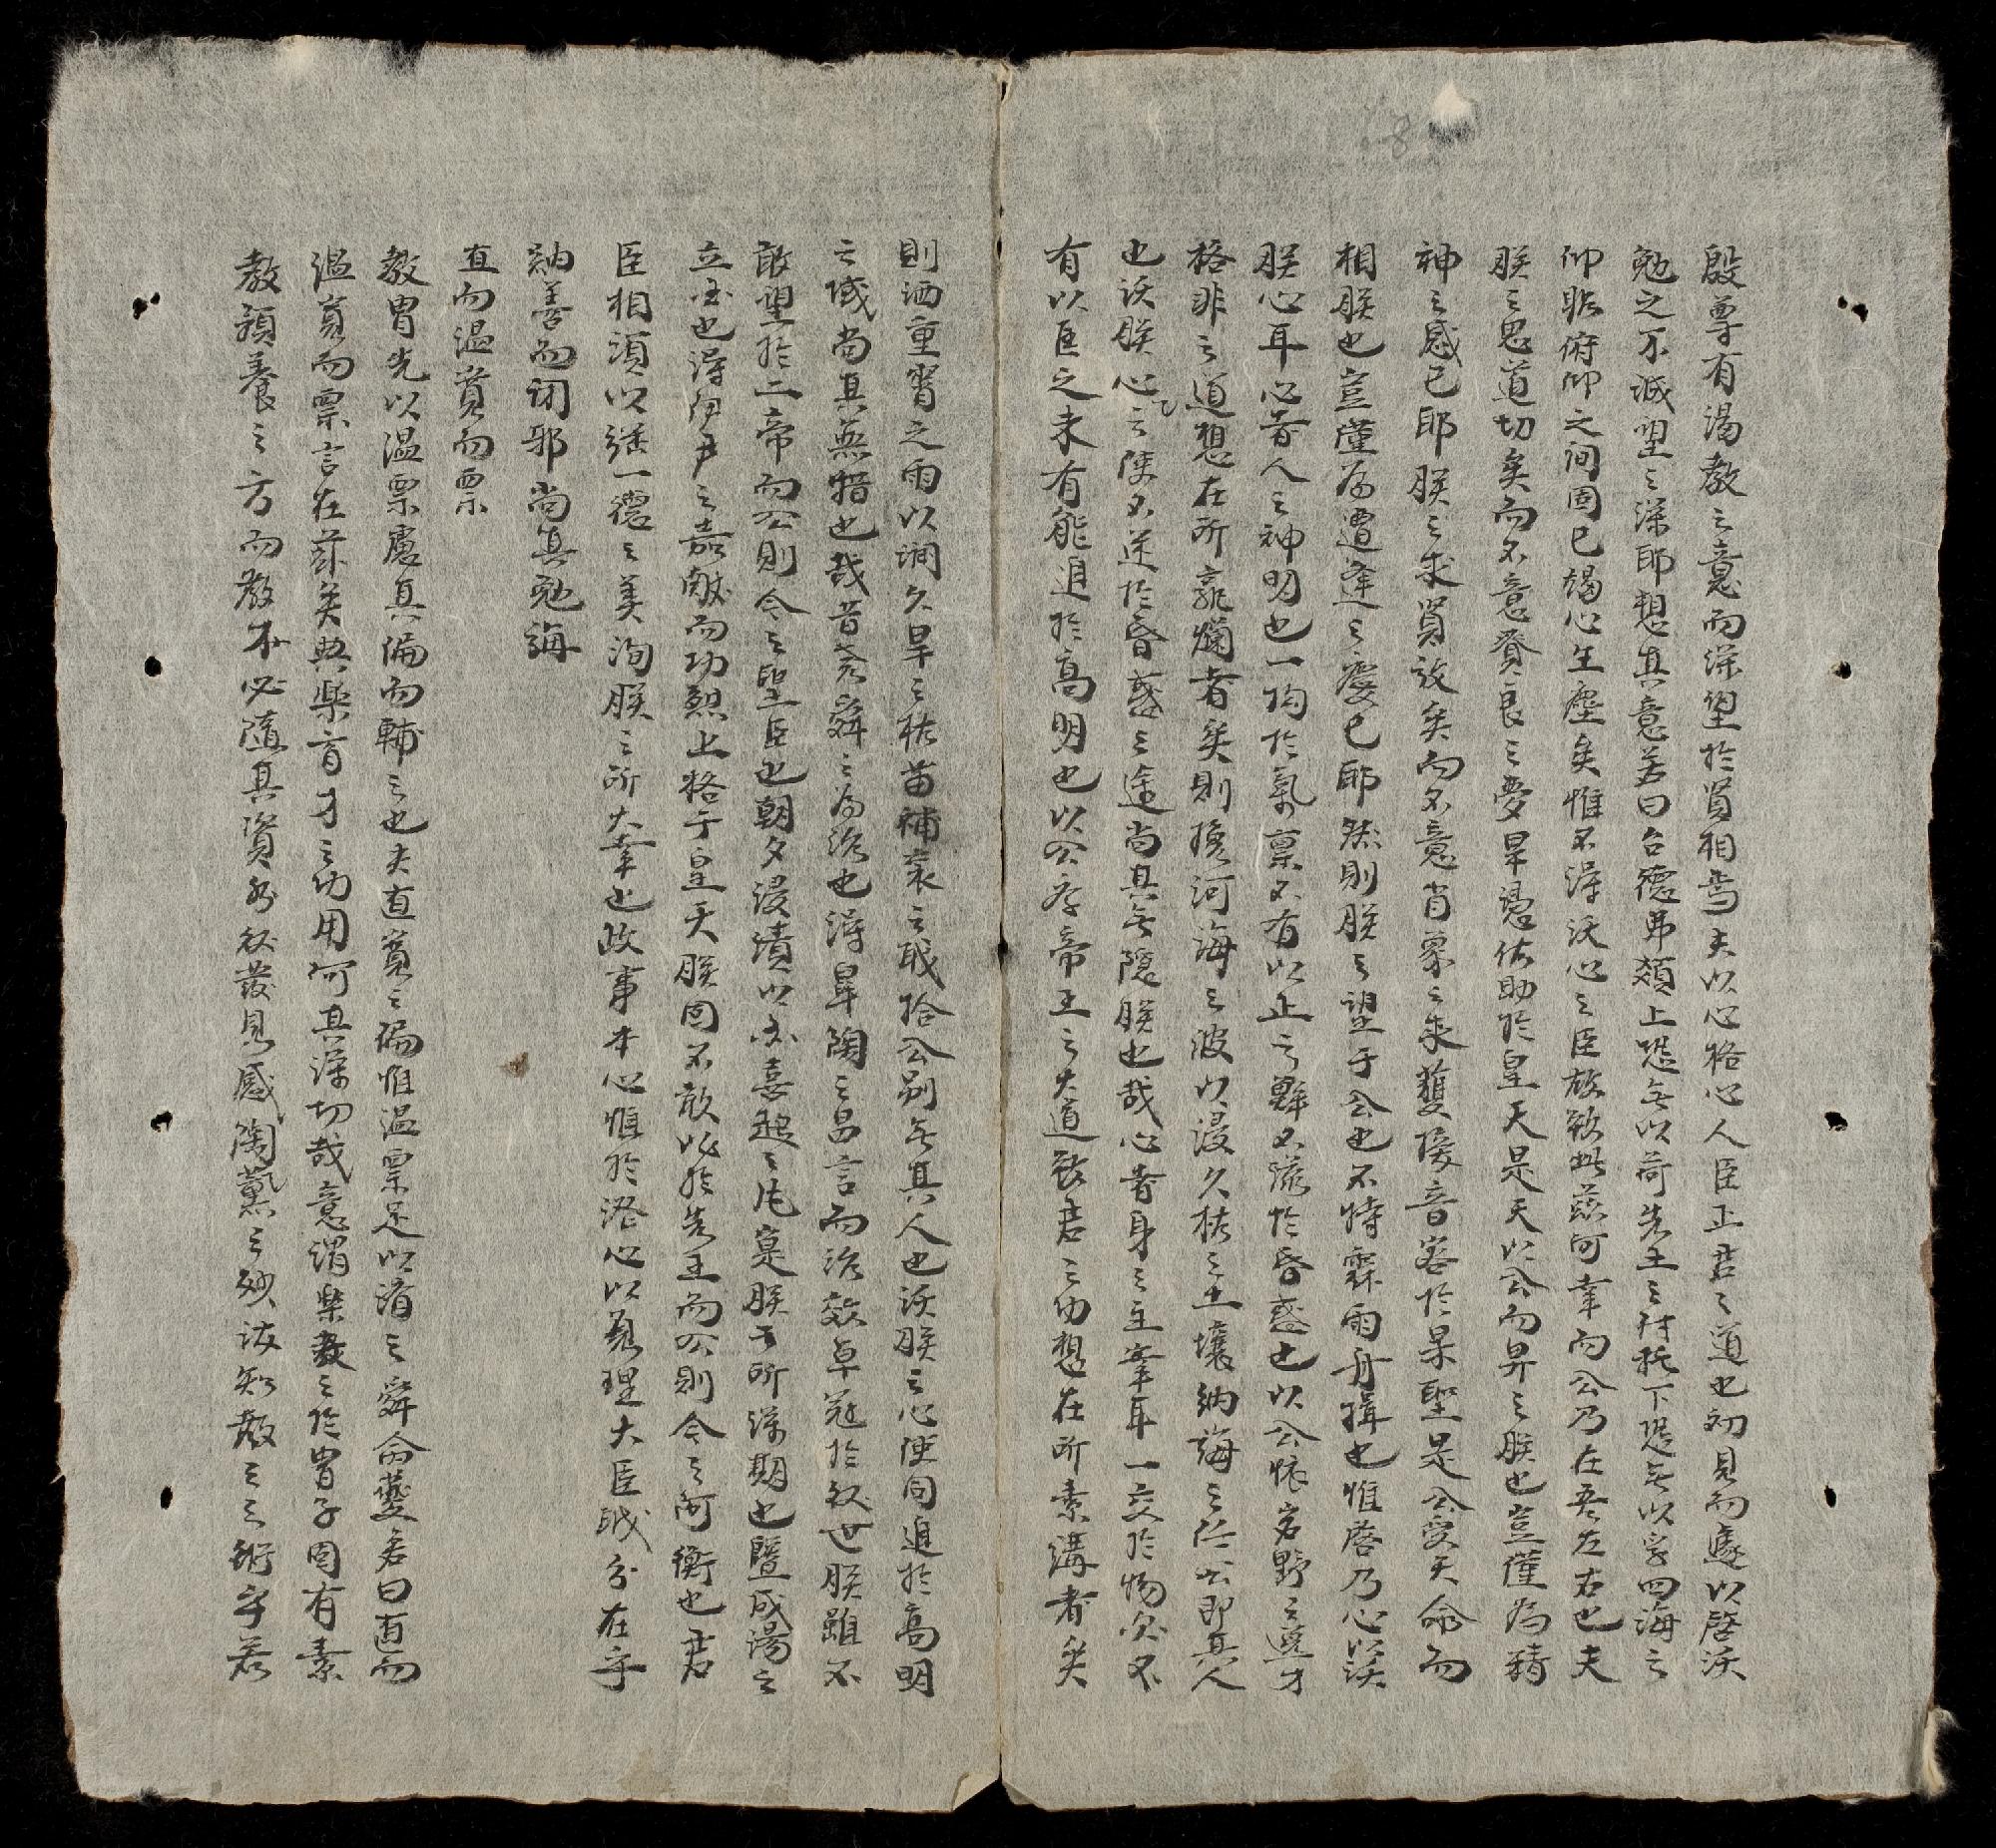 殷尊有渴教之意而深望於賢相焉夫以心格心人臣正君之道也初見而遽以啓沃
勉之不誠望之深耶想其意若曰台德弗類上恐無以荷先王之付托下恐無以字四海之
仰眂俯仰之間固已竭心生塵矣惟不得沃心之臣故致此玆何幸而公乃在吾左右也夫
朕之思道切矣而不意賚良之夢早遇佑助於皇天是天以公而畀之朕也豈僅爲精
神之感已耶朕之求賢設矣而不意肖象之求獲接音容於杲聖是公受天命而
相朕也豈僅爲遭逢之慶已耶然則朕之望于公也不特霖雨舟楫也惟啓乃心以沃
朕心耳心者人之神明也一拘於氣禀不有以正之鮮不流於昏惑也以公懷岩野之逸才
格非之道想在所龍爛者矣則挽河海之波以浸久枯之土壤納誨之任公卽其人
也沃朕心之使不迷於昏惑之途尚其無隱朕也哉心者身之主宰耳一交於物欲不
有以匡之未有能進於高明也以公存帝王之大道致君之功想在所素講者矣
則洒重霄之雨以潤久旱之枯苗補袞之職捨公則無其人也沃朕之心使同進於高明
之域尚其無惜也哉昔堯舜之爲治也得皐陶之昌言而治效卓冠於後世朕雖不
敢望於二帝而公則今之聖臣也朝夕浸漬以示喜起之尾寔朕之所深期也曁成湯之
立國也得伊尹之嘉猷而功烈上格于皇天朕固不敢比於先王而公則今之阿衡也君
臣相須以逐一德之美洵朕之所大幸也政事本心惟於啓心以爲理大臣職分在乎
納善而閉邪尚其勉誨
直而溫寬而栗
教胄先以溫栗慮其偏而輔之也夫直寬之偏惟溫栗足以濟之舜命夔若曰直而
溫寬而栗言在玆矣典樂育才之功用何其深切哉意謂樂教之於胄子固有素
教預養之方而教不必隨其資而後發見感陶薰之妙該知教之之術乎若